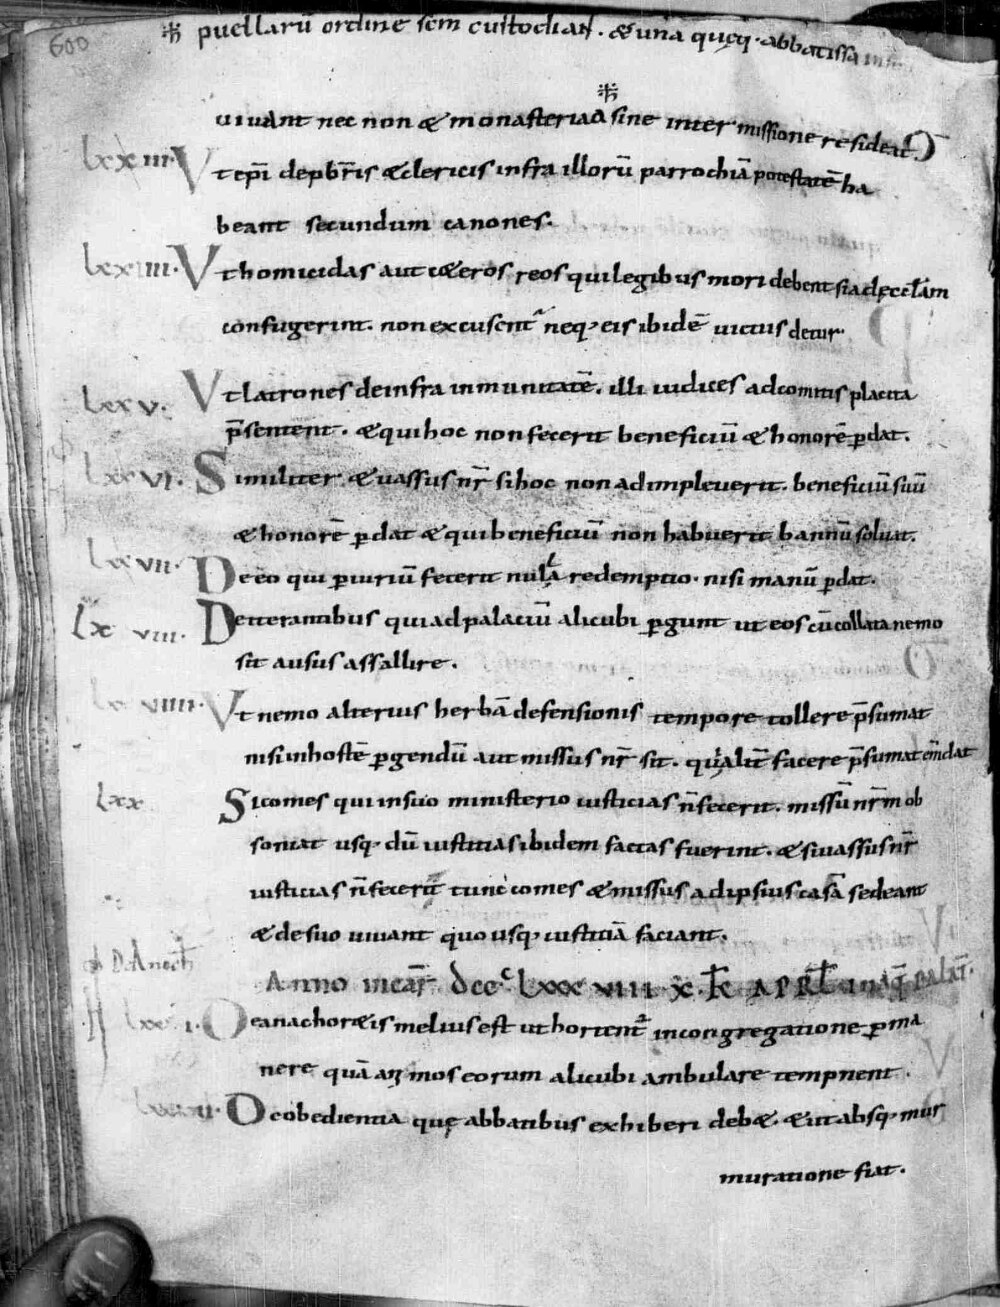 600
puellarū ordine scm custodian̄. &una quęq· abbatissa in
uiuant nec non & monasteria sine intermissione resideat
lxxiii· Vt epī de pb̄ris &clericis infra illorū parrochiā potestatē ha
beant secundum canones.
lxxiiii· Vt homicidas aut c&eros reos qui legibus mori debent si ad eccl̄am
confugerint. non excusent' neq· eis ibidē uictus detur.
lxxv. Vt latrones de infra inmunitatē. illi iudices ad comitis placita
p̄sentent. & qui hoc non fecerit beneficiū & honorē p̱dat.
lxxvi. Similiter &uassus nr̄ si hoc non adimpleuerit. beneficiū suū
& honorē p̱dat & qui beneficiū non habuerit bannū soluat.
lxvii. De eo qui p̱iuriū fecerit nulla redemptio. nisi manū p̱dat.
lxviii. De iterantibus qui ad palaciū alicubi p̱gunt ut eos cū collata nemo
sit ausus assallire.
lxviiii. Vt nemo alterius herbā defensionis tempore tollere p̄sumat
nisi in hostē p̱gendū aut missus nr̄ sit. qui alit̄ facere p̄sumat em̄dat
lxx Si comes qui in suo ministerio iusticias n̄ fecerit. missū nr̄m ob
soniat usq· dū iustitias ibidem factas fuerint. & si uassus nr̄
iusticias n̄ fecerit tunc comes & missus ad ipsius casā sedeant
& de suo uiuant quo usq· iustitiā faciant.
Anno incar̄ dcc lxxxviiii x kl̄ APRL̄ in aq̄ palat̄.
lxxi. De anachor&is melius est ut hortent' in congregatione p̱ma
nere quā an̄mos eorum alicubi ambulare temptent.
lxxii. De obedientia quę abbatibus exhiberi deb&. &ut absq· mur
muratione fiat.